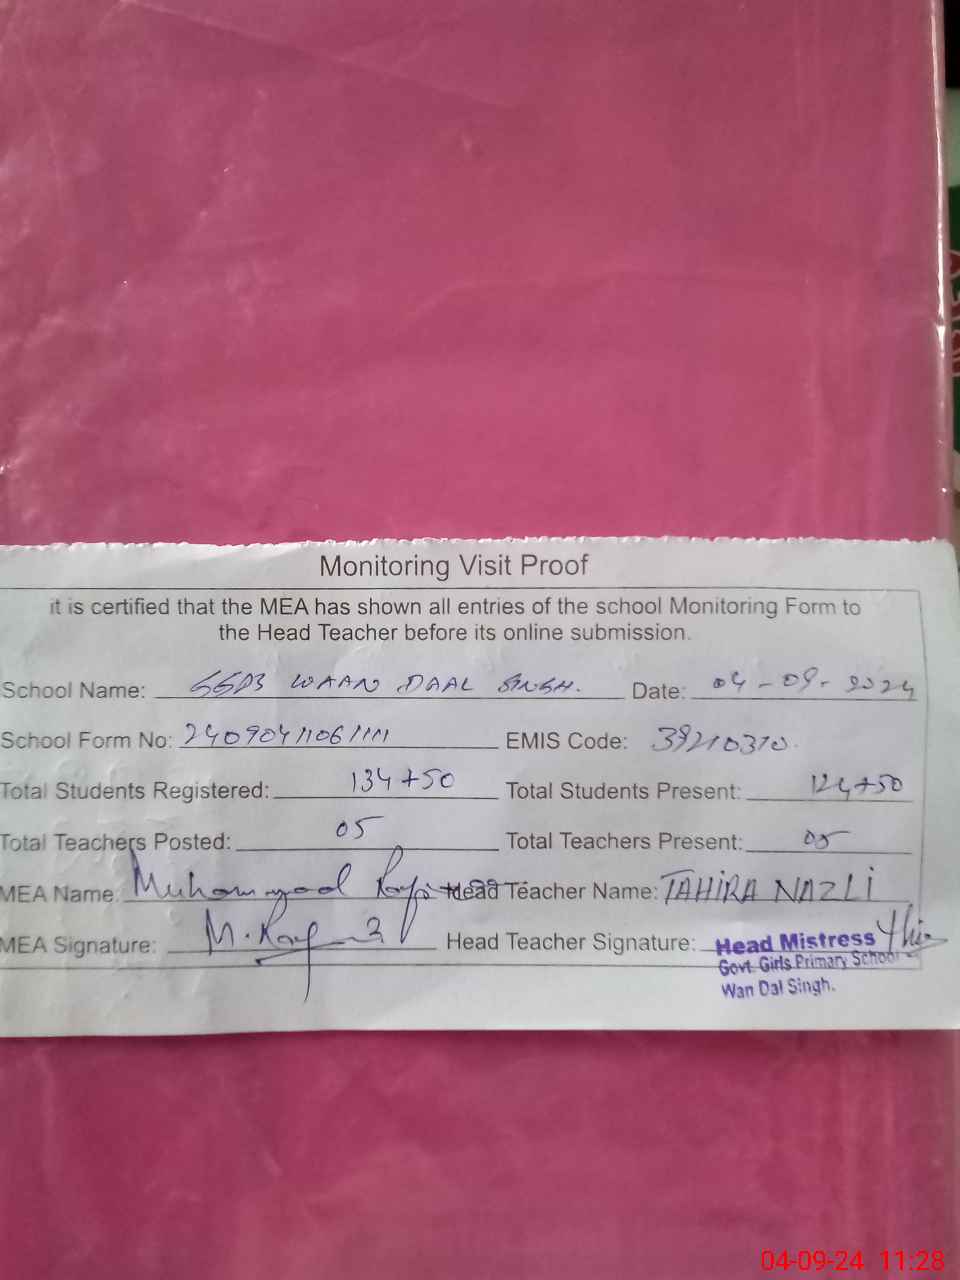 Monitoring Visit Proof
it is certified that the MEA has shown all entries of the school Monitoring Form to
the Head Teacher before its online submission.
School Name: WAAN DAAL SINGH. Date: 04-09-2024
School Form No: 24090411061111 EMIS Code: 39210310
Total Students Registered: 134+50 Total Students Present: 124+50
Total Teachers Posted: 05 Total Teachers Present: 05
MEA Name: Muhammad Head Teacher Name: TAHIRA NAZLI
MEA Signature: Head Teacher Signature:
Head Mistress
Govt. Girls Primary School
Wan Dal Singh.
04-09-24 11:28